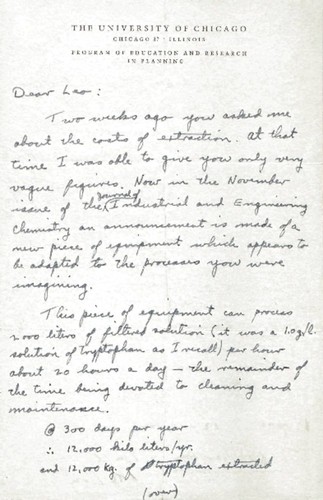 THE UNIVERSITY OF CHICAGO
CHICAGO 37 · ILLINOIS
PROGRAM OF EDUCATION AND RESEARCH
IN PLANNING
Dear Leo:
Two weeks ago you asked me
about the costs of extraction. At that
time I was able to give you only very
vague figures. Now in the November
issue of the Journal of Industrial and Engineering
Chemistry an announcement is made of a
new piece of equipment which appears to
be adapted to the processes you were
imagining.
This piece of equipment can process
2000 liters of filtered solution (it was a 1.0 g/l.
solution of tryptophan as I recall) per hour
about 20 hours a day — the remainder of
the time being devoted to cleaning and
maintenance.
@ 300 days per year
∴ 12,000 kilo liters/yr.
and 12,000 kg. of tryptophan extracted
(over)